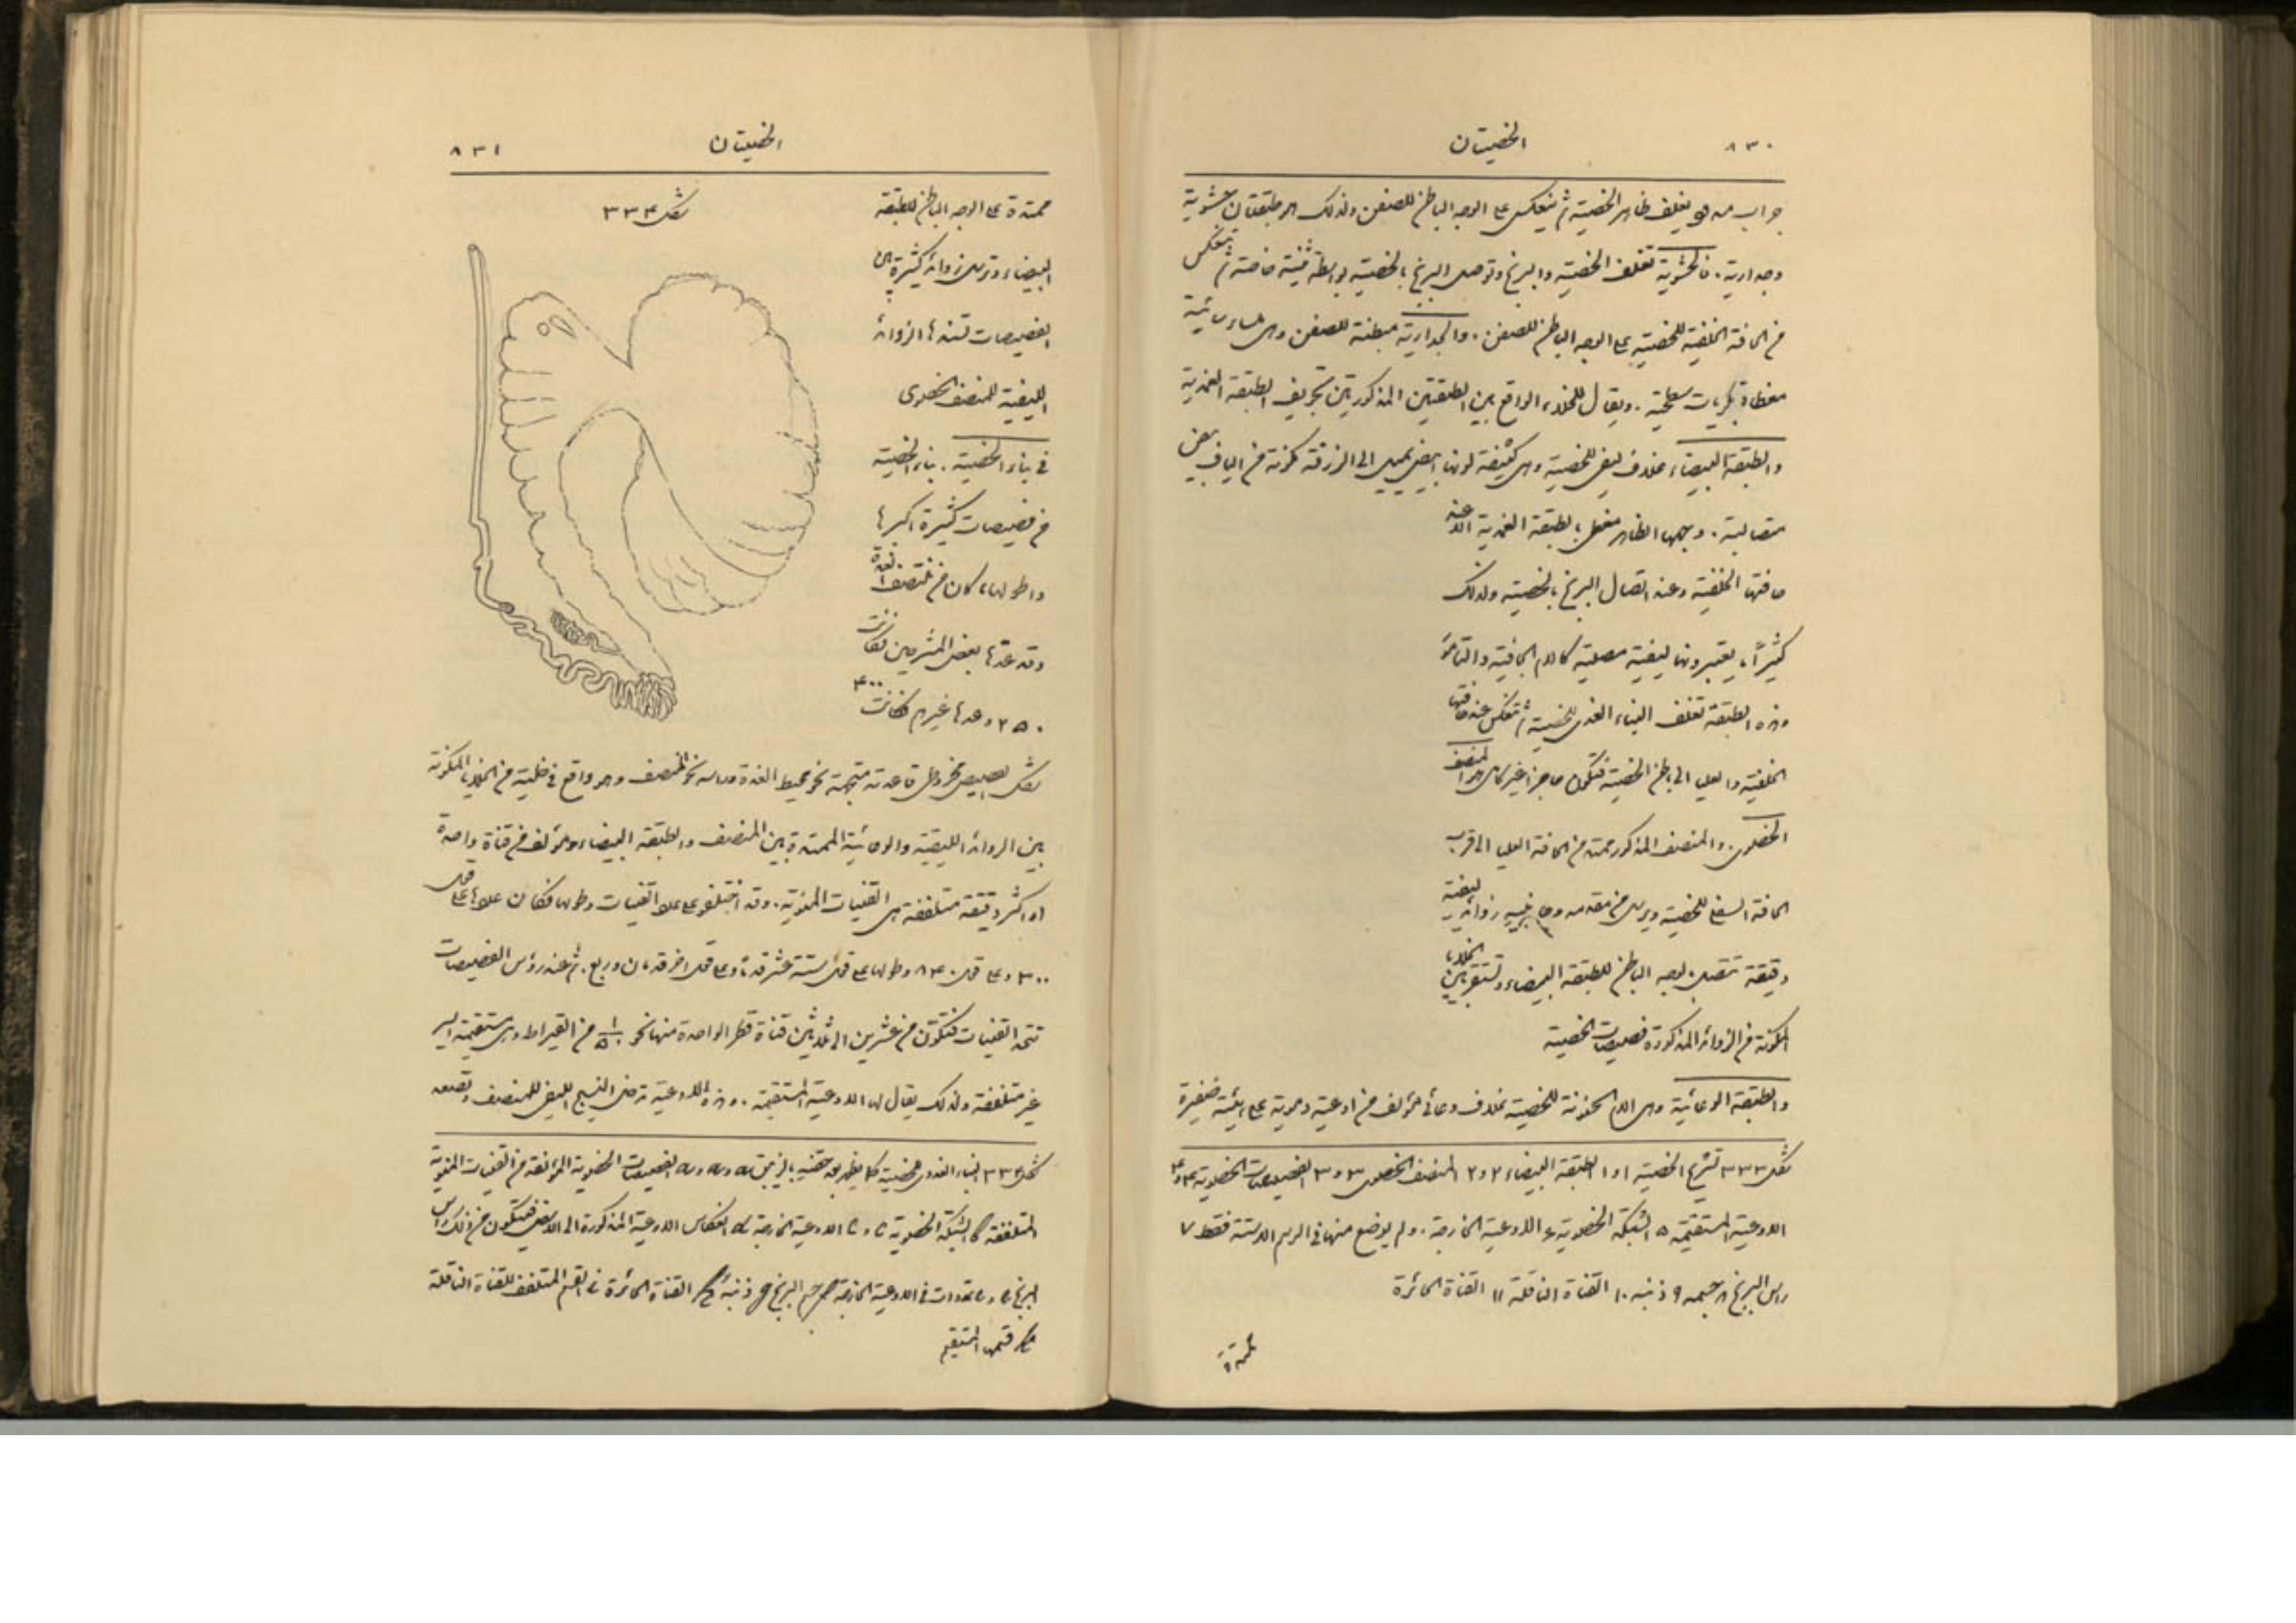 ٨٣٠
الخصيتان
جراب مصلي يغلف ظاهر الخصية ثم ينعكس على الوجه الباطن للصفن ولذلك هو طبقتان حشوية
وجدارية. فالحشوية تغلف الخصية والبربخ وتوصل البربخ بالخصية بواسطة ثنية خاصة ثم تنعكس
من الحافة الخلفية للخصية على الوجه الباطن للصفن. والجدارية مبطنة للصفن وهي ملساء سائبة
مغطاة بكريات سطحية. ويقال للخلاء الواقع بين الطبقتين المذكورتين تجويف الطبقة الغمدية
والطبقة البيضاء غلاف ليفي للخصية وهي كثيفة لونها ابيض يميل الى الزرقة مكونة من الياف بيض
متصالبة. وجهها الظاهر مغطى بالطبقة الغمدية الا عند
حافتها الخلفية وعند اتصال البربخ بالخصية ولذلك
كثيرًا ما يعتبرونها ليفية مصلية كالام الجافية والتامور
وهذه الطبقة تغلف البناء الغدي للخصية ثم تنعكس عند حافتها
الخلفية والعليا الى باطن الخصية فتكون حاجزا غير كامل هو المنصف
الخصوي. والمنصف المذكور ممتد من الحافة العليا الى قرب
الحافة السفلى للخصية ويرسل من مقدمه وجانبيه زوائد ليفية
دقيقة تتصل بالوجه الباطن للطبقة البيضاء وتستقر بين الخلايا
المكونة من الزوائد المذكورة فصيصات الخصية
والطبقة الوعائية وهي الام الحنونة للخصية غلاف وعائي مؤلف من اوعية دموية على هيئة ضفيرة
شكل ٣٣٣ تشريح الخصية ١ و ١ الطبقة البيضاء ٢ و ٢ المنصف الخصوي ٣ و ٣ الفصيصات الخصوية ٤ و ٤
الاوعية المستقيمة ٥ الشبكة الخصوية ٦ الاوعية الخارجة. ولم يوضع منها في الرسم الا ستة فقط ٧
راس البربخ ٨ جسمه ٩ ذنبه ١٠ القناة الناقلة ١١ القناة الحائرة
ممتدة
٨٣١
الخصيتان
شكل ٣٣٤
ممتدة على الوجه الباطن للطبقة
البيضاء وترسل زوائد كثيرة بين
الفصيصات تسندها الزوائد
الليفية للمنصف الخصوي
في بناء الخصية. بناء الخصية
من فصيصات كثيرة اكبرها
واطولها ما كان من منتصف الغدة
وقد عدّها بعض المشرحين فكانت
٢٥٠ وعدها غيرهم فكانت ٤٠٠
وشكل الفصيص مخروطي قاعدته متجهة نحو محيط الغدة وراسه نحو المنصف وهو واقع في خلية من الخلايا المكونة
بين الزوائد الليفية والوعائية الممتدة بين المنصف والطبقة البيضاء ومؤلف من قناة واحدة
او اكثر دقيقة متلففة هي القنيات المنوية. وقد اختلفوا على عدد القنيات وطولها فكان عددها على قول
٣٠٠ وعلى قول ٨٤٠ وطولها على قول ستة عشر قدما وعلى قول اخر قدمان وربع. ثم عند رؤس الفصيصات
تتحد القنيات فتتكون من عشرين الى ثلاثين قناة قطر الواحدة منها نحو ١/٥٠ من القيراط وهي مستقيمة السير
غير متلففة ولذلك يقال لها الاوعية المستقيمة. وهذه الاوعية تدخل النسيج الليفي للمنصف وتصعد
شكل ٣٣٤ البناء الغدي للخصية كما يظهر بعد حقنه بالزيبق الفصيصات الخصوية المؤلفة من القنيات المنوية
المتلففة الشبكة الخصوية الاوعية الخارجة انعكاس الاوعية المذكورة الى الاسفل فيتكون من ذلك راس
البربخ تعددات في الاوعية الخارجة جسم البربخ ذنبه القناة الحائرة القسم المتلفف للقناة الناقلة
قسمها المستقيم